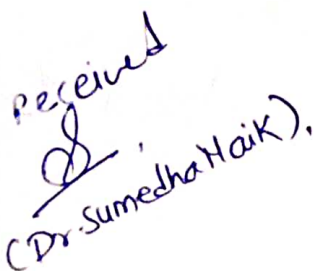 Received
(Dr. Sumedha Naik).